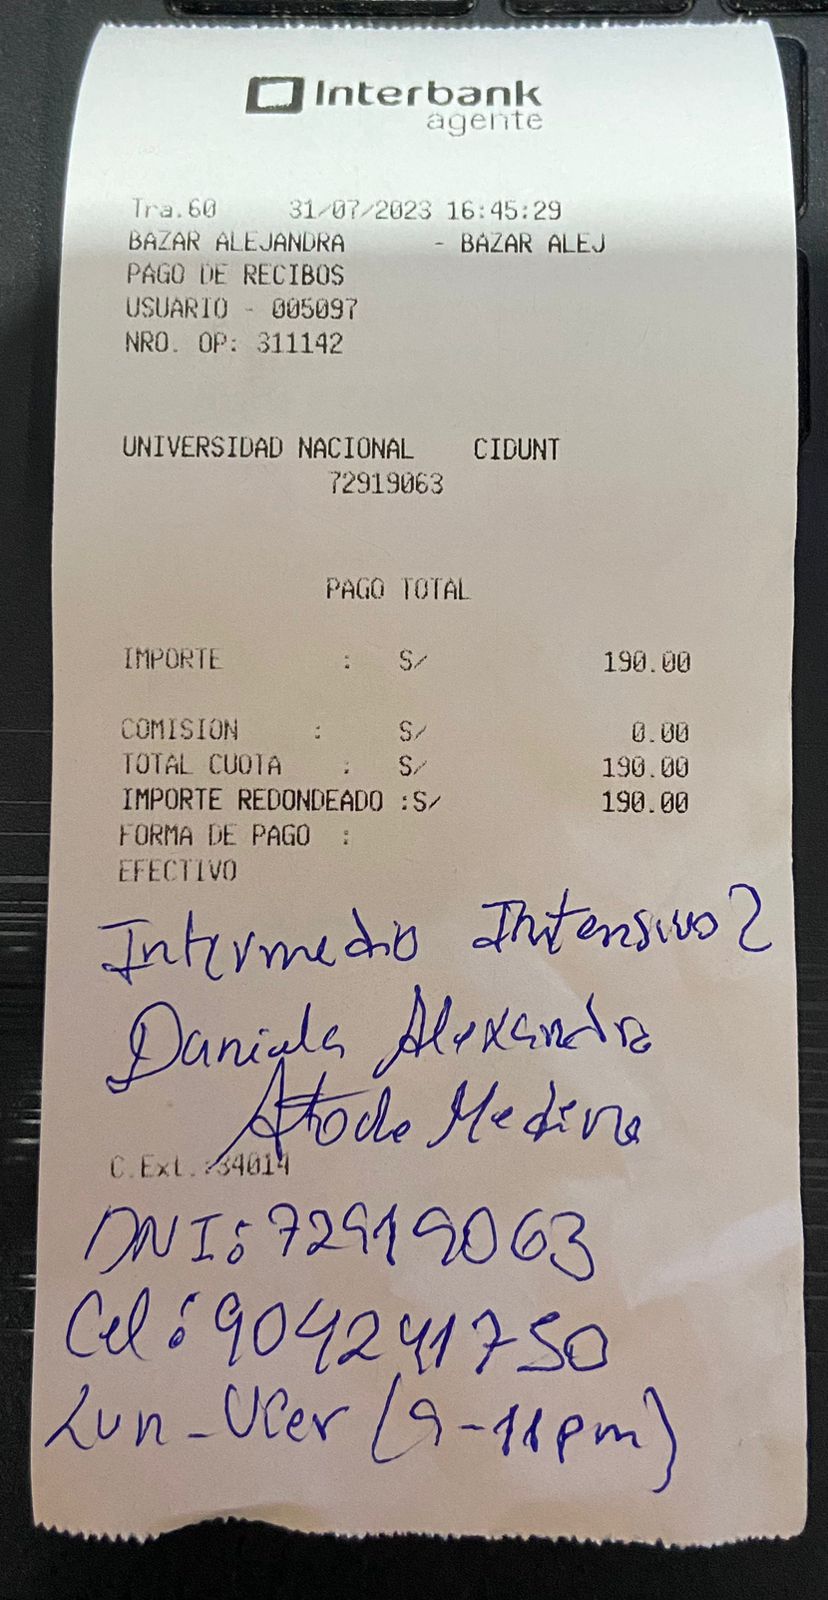 Interbank
agente
Tra.60 31/07/2023 16:45:29
BAZAR ALEJANDRA - BAZAR ALEJ
PAGO DE RECIBOS
USUARIO - 005097
NRO. OP: 311142
UNIVERSIDAD NACIONAL CIDUNT
72919063
PAGO TOTAL
IMPORTE : S/ 190.00
COMISION : S/ 0.00
TOTAL CUOTA : S/ 190.00
IMPORTE REDONDEADO :S/ 190.00
FORMA DE PAGO :
EFECTIVO
Intermedio Intensivo 2
Daniela Alexandra
Atoche Medina
C.Ext.:34014
DNI: 72919063
Cel: 904241750
Lun-Vier (9-11pm)